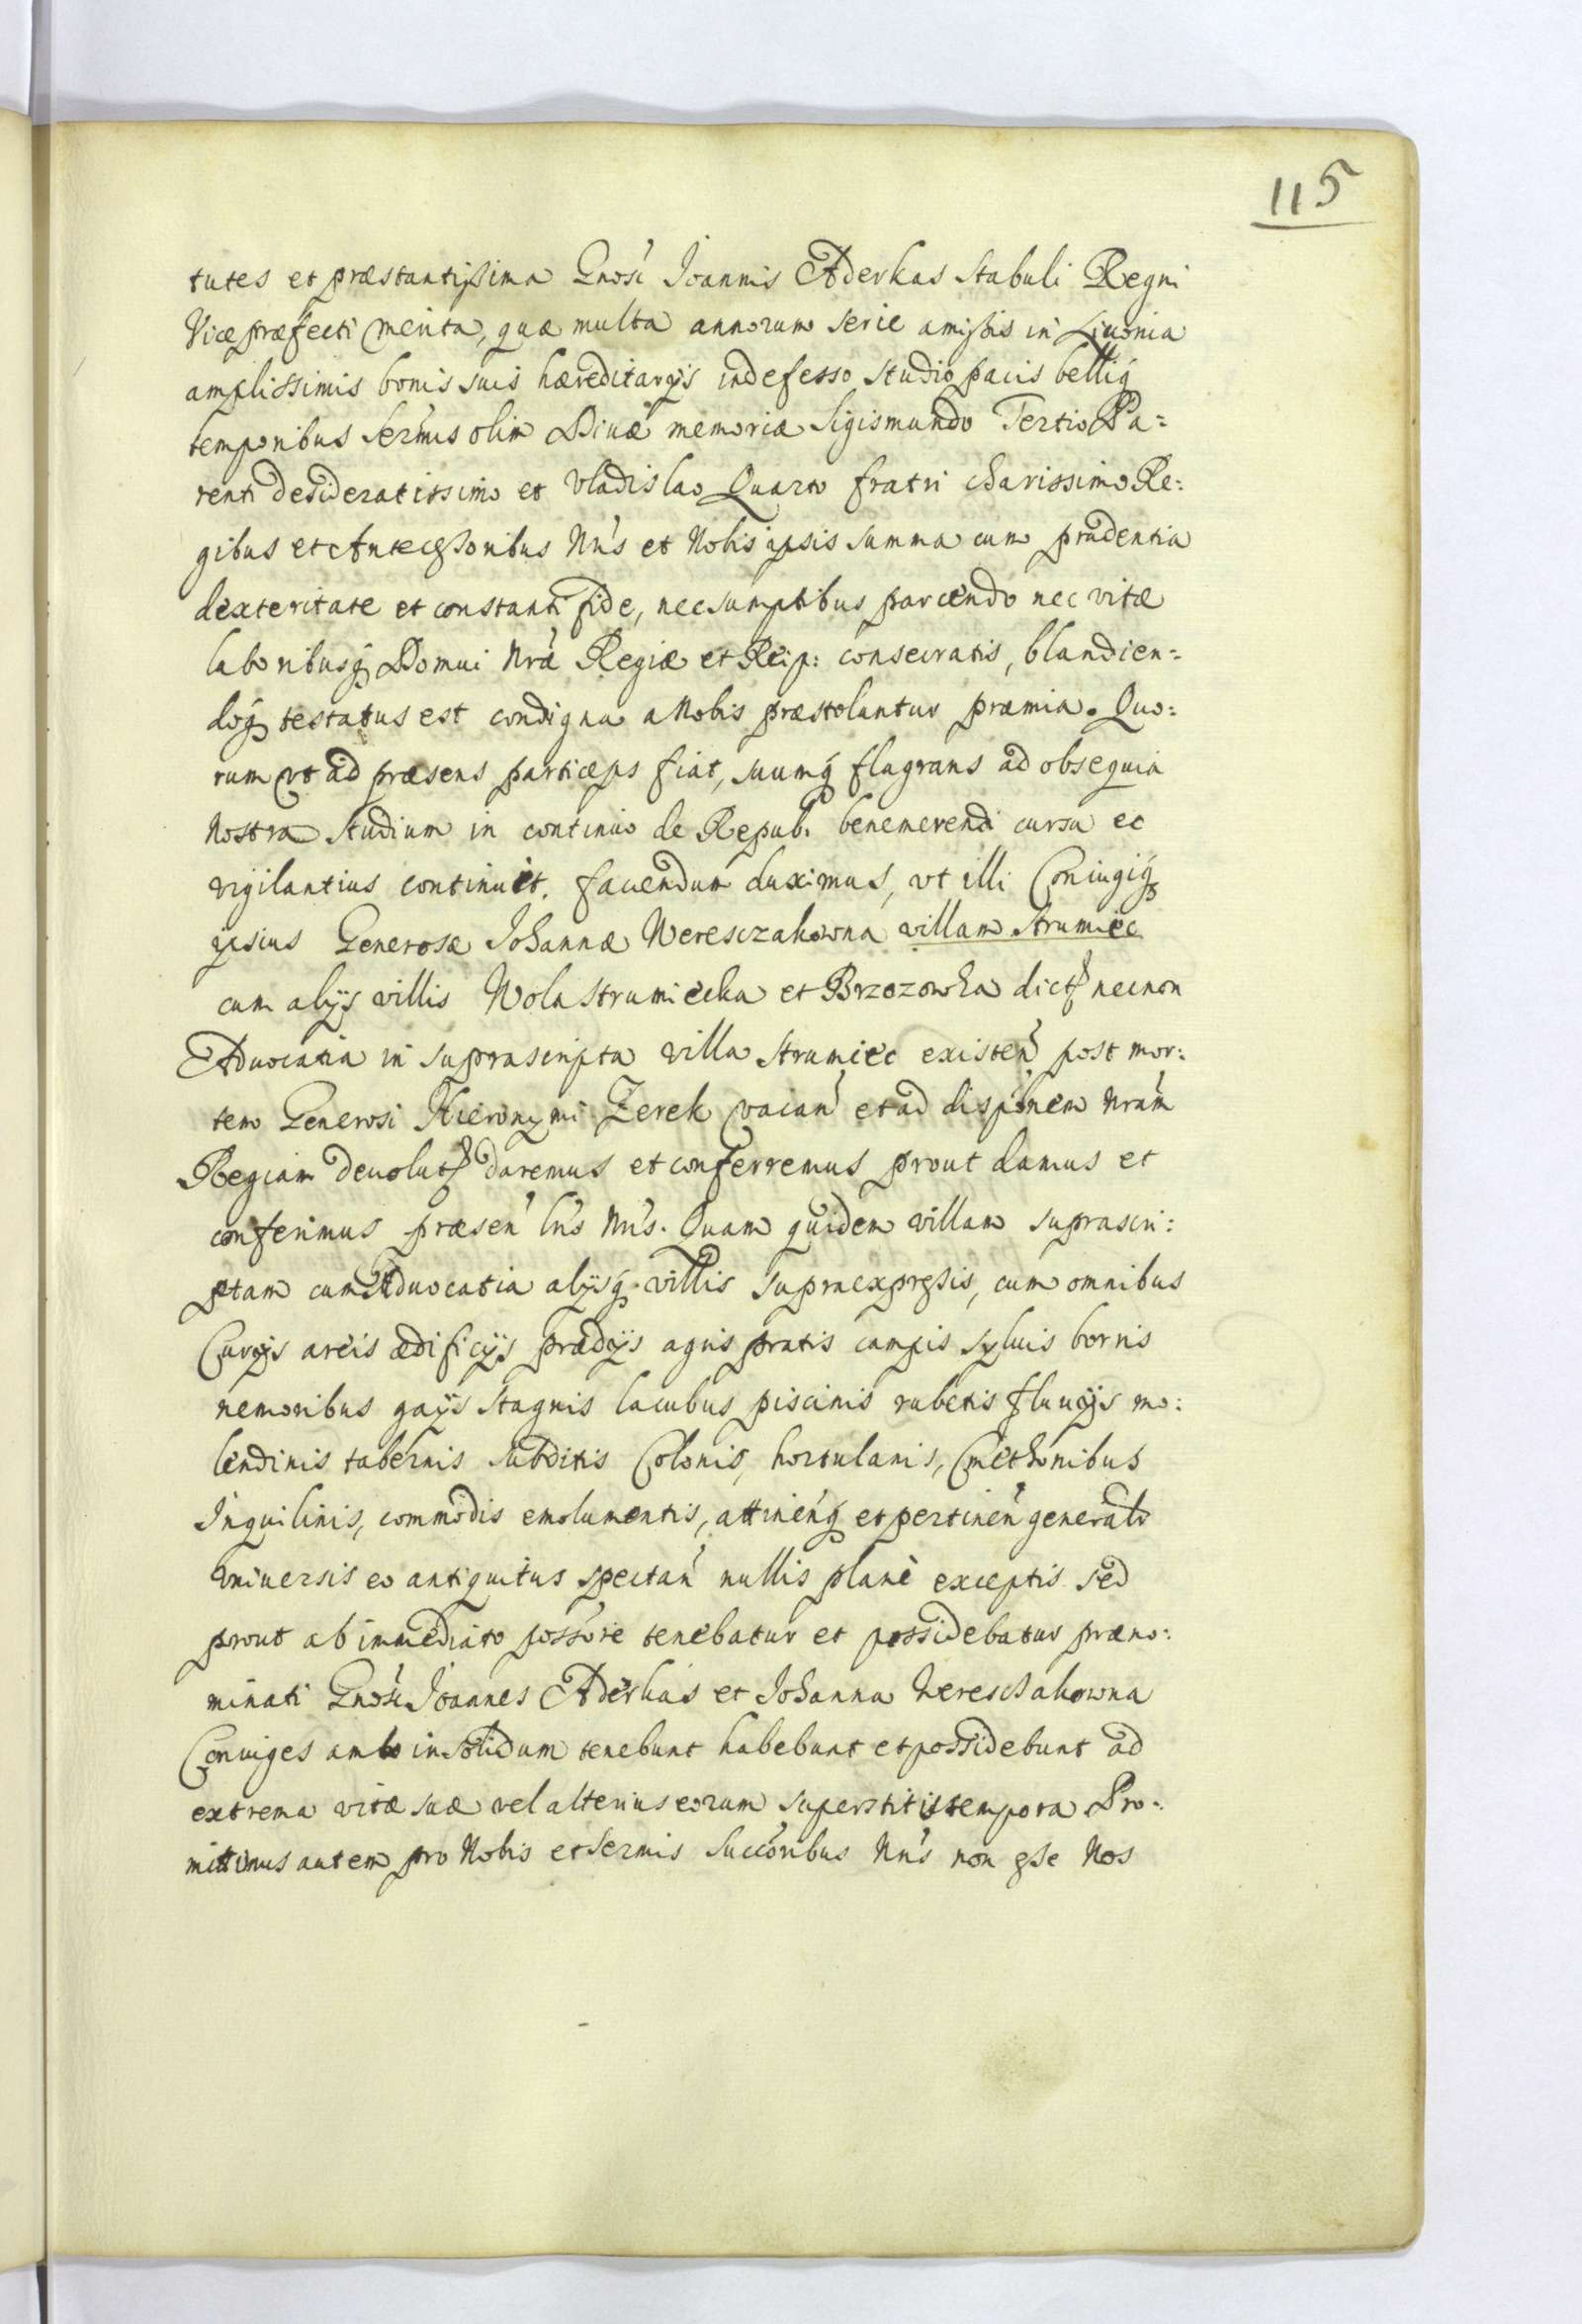 115
tutes et præstantissima Gnosi Joannis Aderkas Stabuli Regni
Vicepræfecti merita, quæ multa annorum serie amissis in Livonia
amplissimis bonis suis hæreditarijs indefesso studio pacis belliq́
temporibus Serm̃is olim Divæ memoriæ Sigismundo Tertio Pa=
renti desideratissimo et Vladislao Quarto fratri charissimo Re:
gibus et Antecessoribus Nrĩs et Nobis ipsis summa cum prudentia
dexteritate et constanti fide, nec sumptibus parcendo nec vitæ
laboribusq́ Domui Nræ̃ Regiæ et Reip: consecratis, blandien=
doq́ testatus est condigna a Nobis præstolantur præmia. Quo=
rum vt ad præsens particeps fiat, suumq́ flagrans ad obsequia
Nostra studium in continuo de Repub. benemerendi cursu ec
vigilantius continuet. favendum duximus, vt illi Coniugiq́
ipsius Generosæ Johannæ Weresczakowna villam Strumiec
cum alijs villis Wola Strumiecka et Brzozowka dict necnon
Advocatia in suprascripta villa Strumiec existeñ post mor:
tem Generosi Hieronymi Zerek vacañ et ad disp̃onem Nrãm
Regiam devolut daremus et conferremus prout damus et
conferimus præseñ lr̃is Nrĩs. Quam quidem villam suprascri:
ptam cum Advocatia alijsq́ villis supraexpressis, cum omnibus
Curijs areis ædificijs prædijs agris pratis campis sylvis borris
nemoribus gajis stagnis lacubus piscinis rubetis fluvijs mo:
lendinis tabernis subditis Colonis, hortulanis, Cmethonibus
Inquilinis, commodis emolumentis, attineñq́ et pertineñ generalr̃
vniversis eo antiquitus spectañ nullis planè exceptis sed
prout ab immediato possõre tenebatur et possidebatur præno:
minati Gnosi Joannes Aderkas et Johanna Wereschakowna
Coniuges ambo in solidum tenebunt habebunt et possidebunt ad
extrema vitæ suæ vel alterius eorum superstitis tempora. Pro:
mittimus autem pro Nobis et Serm̃is Succõribus Nrĩs non esse Nos